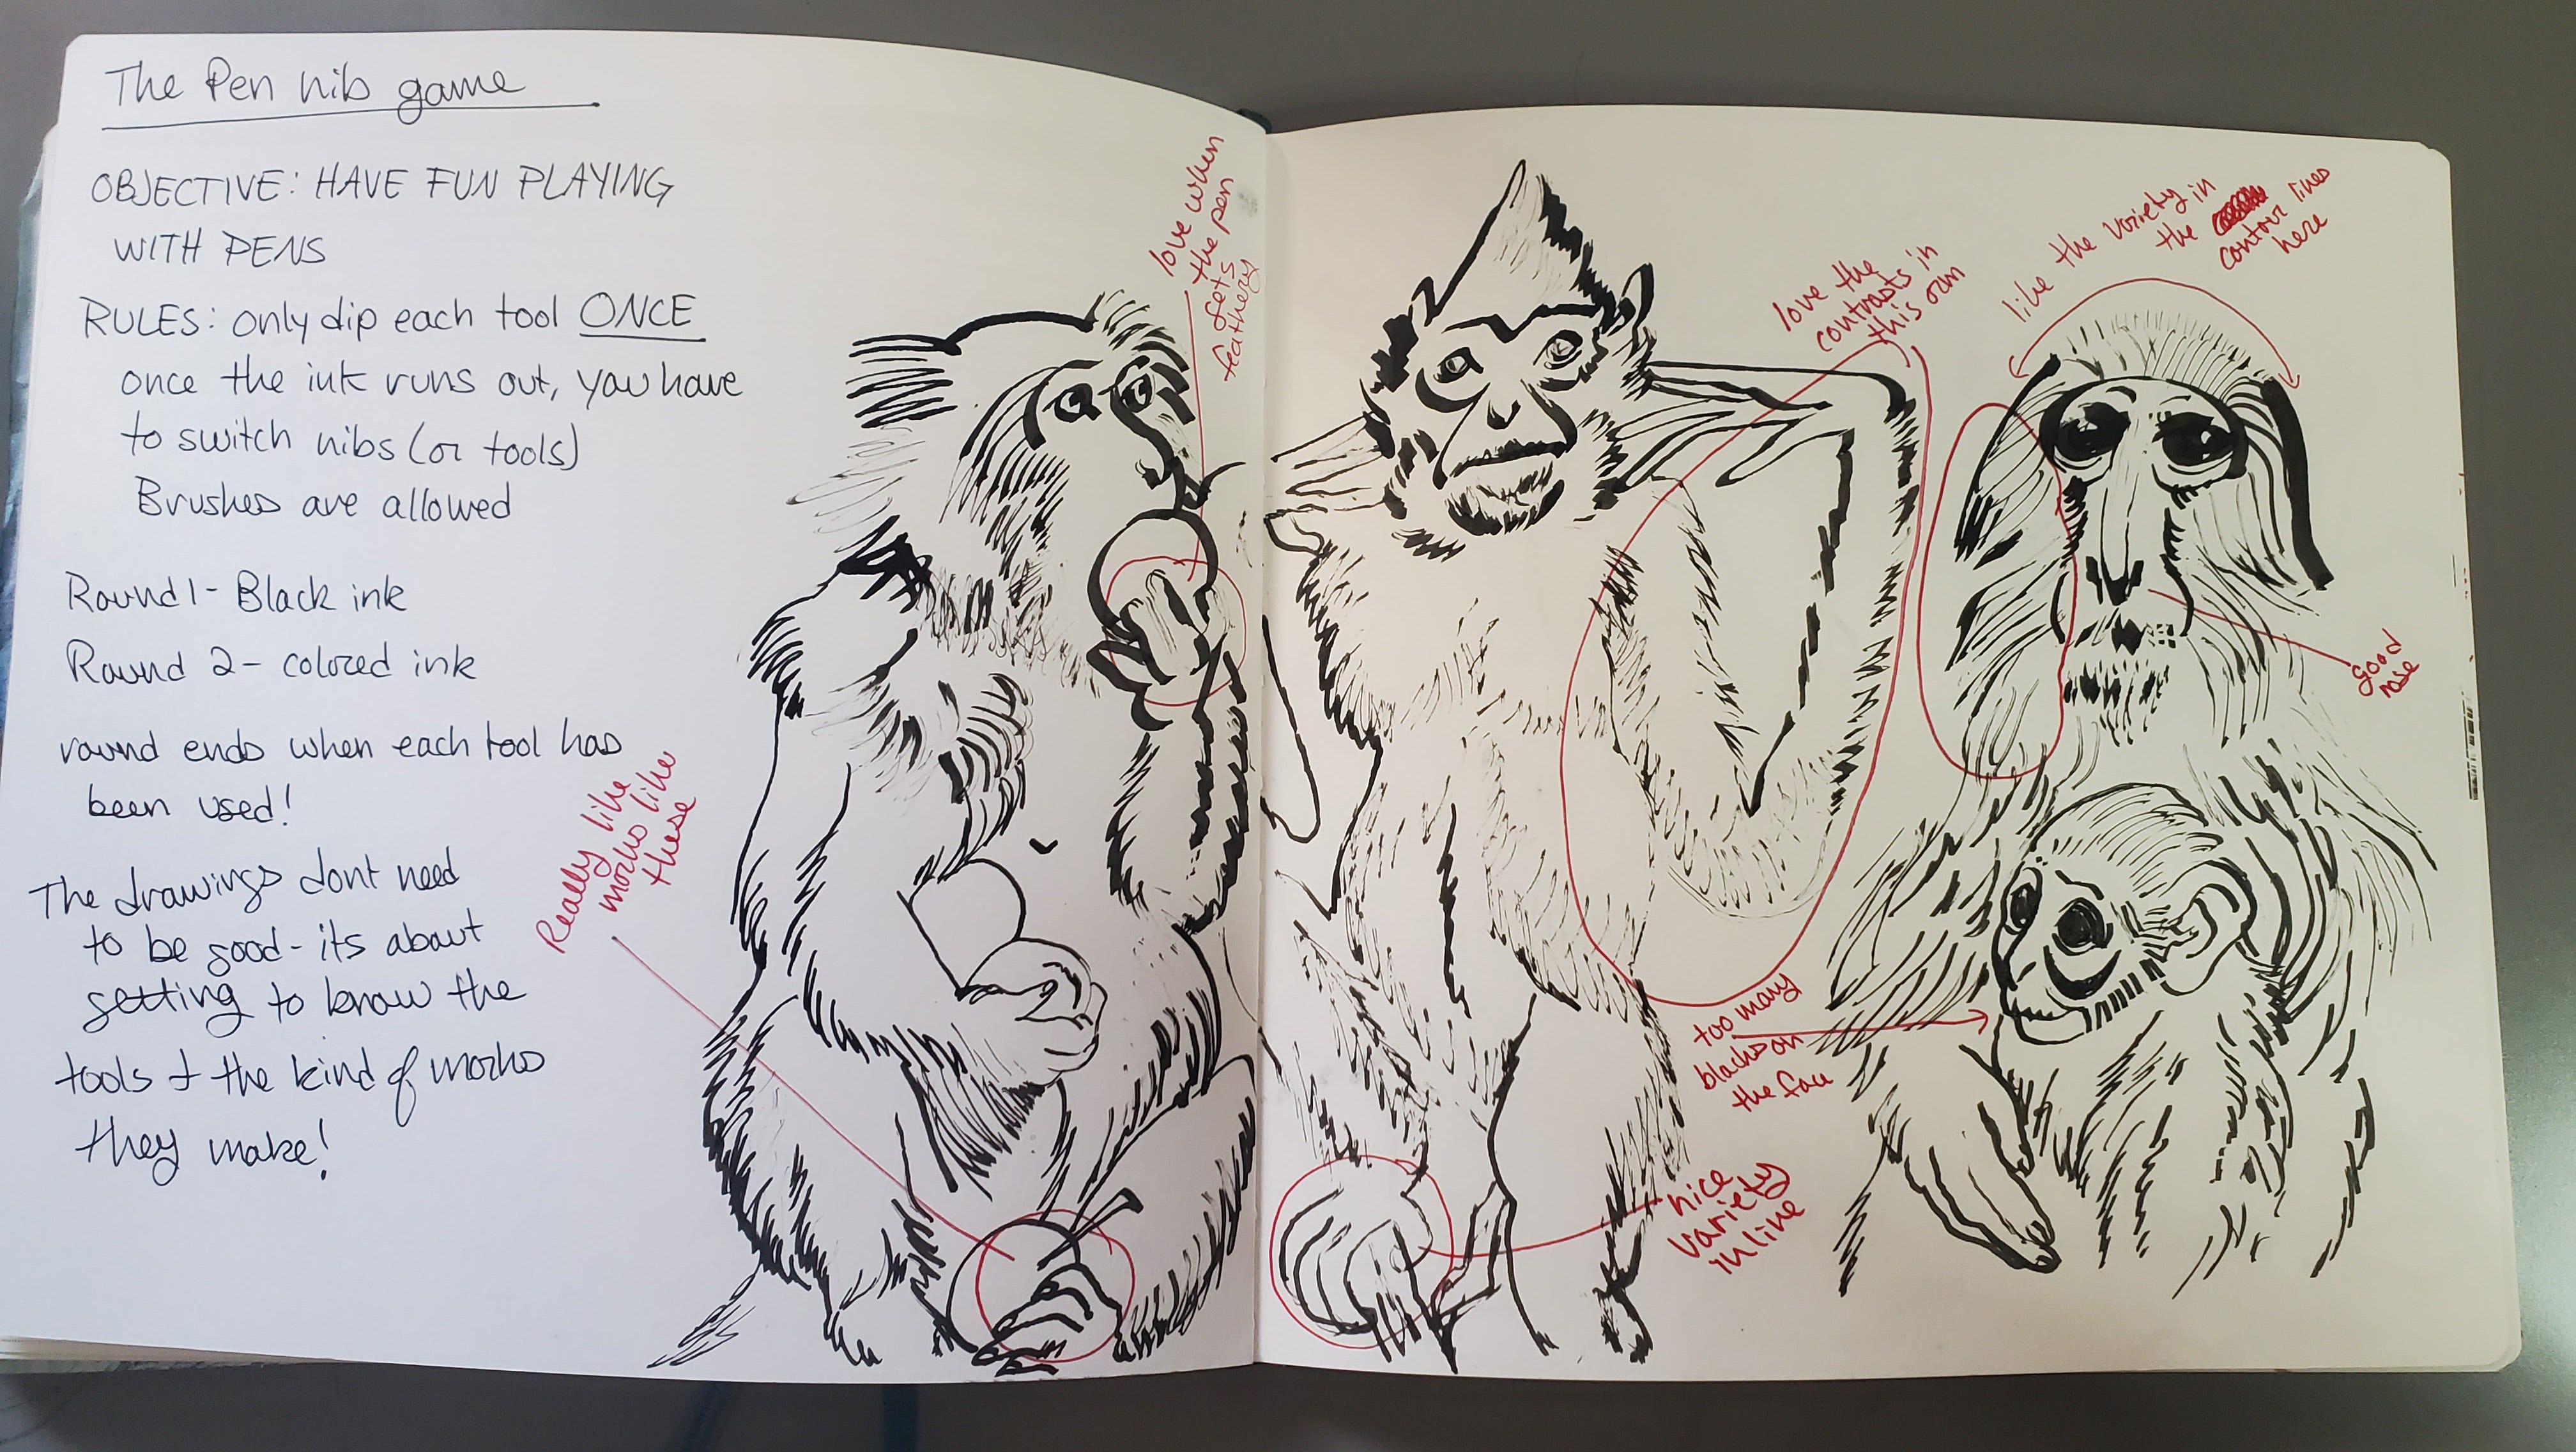 The Pen nib game
OBJECTIVE: HAVE FUN PLAYING
WITH PENS
RULES: only dip each tool ONCE
once the ink runs out, you have
to switch nibs (or tools)
Brushes are allowed
Round 1- Black ink
Round 2- colored ink
round ends when each tool has
been used!
The drawings dont need
to be good - its about
getting to know the
tools & the kind of marks
they make!
Really like
marks like
these
love when
the pen
gets
feathery
love the
contrasts in
this arm
like the variety in
the contour lines
here
good
nose
too many
blacks on
the face
nice
variety
in line